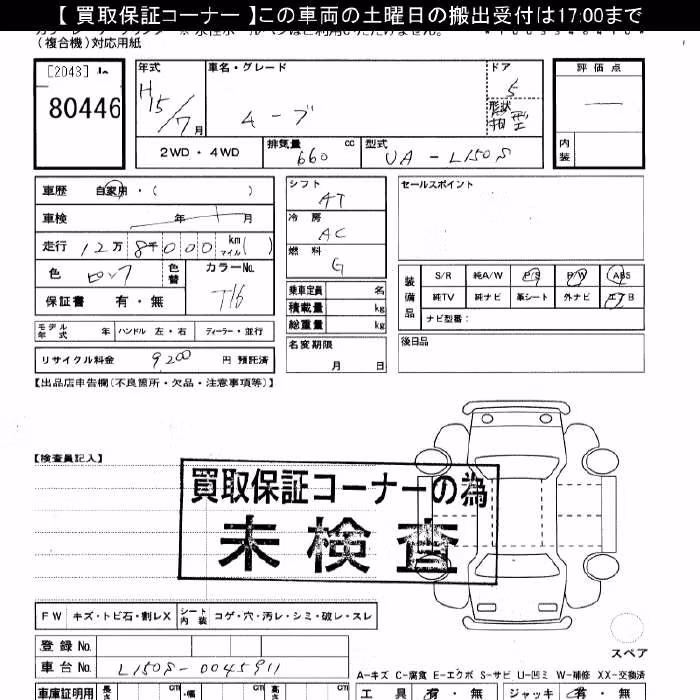 【 買取保証コーナー 】この車両の土曜日の搬出受付は17:00まで
(複合機)対応用紙
[2043]
80446
年式
H15/7月
車名・グレード
ムーブ
ドア
5
形状
箱型
評価点
内装
2WD・4WD
排気量
660
cc
型式
UA-L150S
車歴 自家用・( )
車検 年 月
走行 12万 8千 000 km マイル ( )
色
色替
カラーNo.
T16
保証書 有・無
シフト
AT
冷房
AC
燃料
G
乗車定員 名
積載量 kg
総重量 kg
セールスポイント
装備品
S/R 純A/W P/S P/W ABS
純TV 純ナビ 革シート 外ナビ エアB
ナビ型番:
モデル年式 年 ハンドル 左・右 ディーラー・並行
リサイクル料金 9,200 円 預託済
名変期限
月 日
後日品
【出品店申告欄(不良箇所・欠品・注意事項等)】
【検査員記入】
買取保証コーナーの為
未検査
FW キズ・トビ石・割レX シート内装 コゲ・穴・汚レ・シミ・破レ・スレ
登録No.
車台No. L150S-0045911
スペア
A-キズ C-腐食 E-エクボ S-サビ U-凹ミ W-補修 XX-交換済
車庫証明用 長さ cm 幅 cm 高さ cm
工具 有・無 ジャッキ 有・無